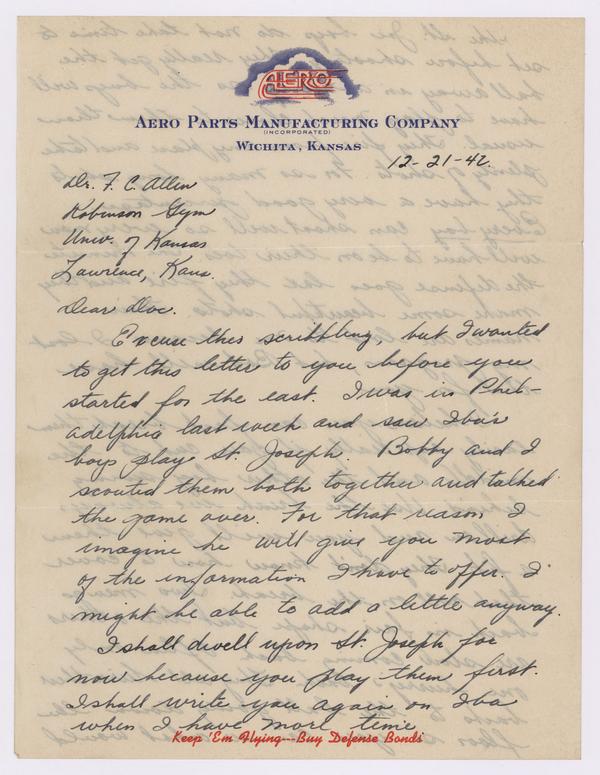 AERO
AERO PARTS MANUFACTURING COMPANY
(INCORPORATED)
WICHITA, KANSAS
12-21-42.
Dr. F. C. Allen
Robinson Gym
Univ. of Kansas
Lawrence, Kans.
Dear Doc.
Excuse this scribbling, but I wanted
to get this letter to you before you
started for the east. I was in Phil-
adelphia last week and saw Iba's
boys play St. Joseph. Bobby and I
scouted them both together and talked
the game over. For that reason I
imagine he will give you most
of the information I have to offer. I
might be able to add a little anyway.
I shall dwell upon St. Joseph for
now because you play them first.
I shall write you again on Iba
when I have more time
Keep 'Em Flying---Buy Defense Bonds